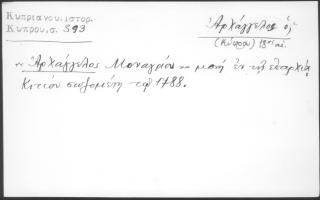 Κυπριανου.ιστορ.
Κυπρου.σ. 393
Ἀρχάγγελος ὁ,
(Κύπρου) 18ος αἰ.
"Ἀρχάγγελος Μοναγρίου" μονή ἐν τῇ ἐπαρχίᾳ
Κιτίου σωζομένη τῷ 1788.